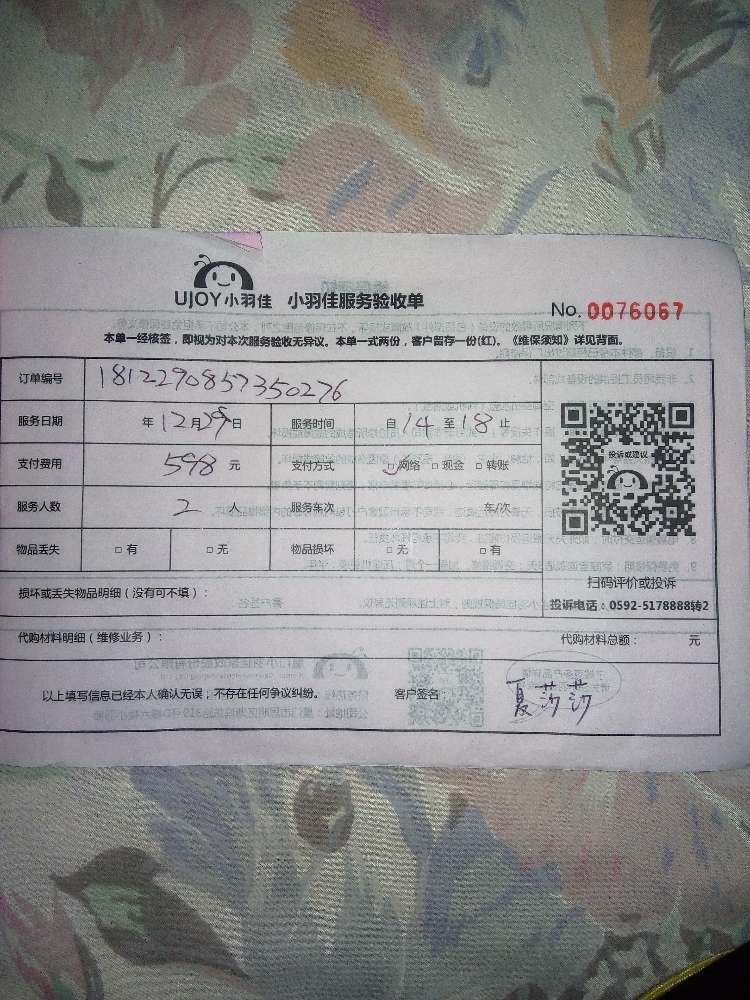 UJOY小羽佳 小羽佳服务验收单
No. 0076067
本单一经核签，即视为对本次服务验收无异议。本单一式两份，客户留存一份(红)。《维保须知》详见背面。
订单编号 1812290857350276
服务日期 年12月29日 服务时间 自14至18止
支付费用 598元 支付方式 □网络 □现金 □转账
投诉或建议
服务人数 2人 服务车次 车/次
物品丢失 □有 □无 物品损坏 □无 □有
扫码评价或投诉
损坏或丢失物品明细（没有可不填）：
投诉电话：0592-5178888转2
代购材料明细（维修业务）： 代购材料总额： 元
以上填写信息已经本人确认无误，不存在任何争议纠纷。 客户签名： 夏莎莎